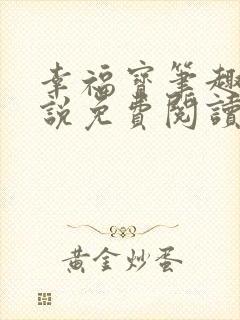 幸福寶筆趣
說免費閱讀
黃金炒蛋